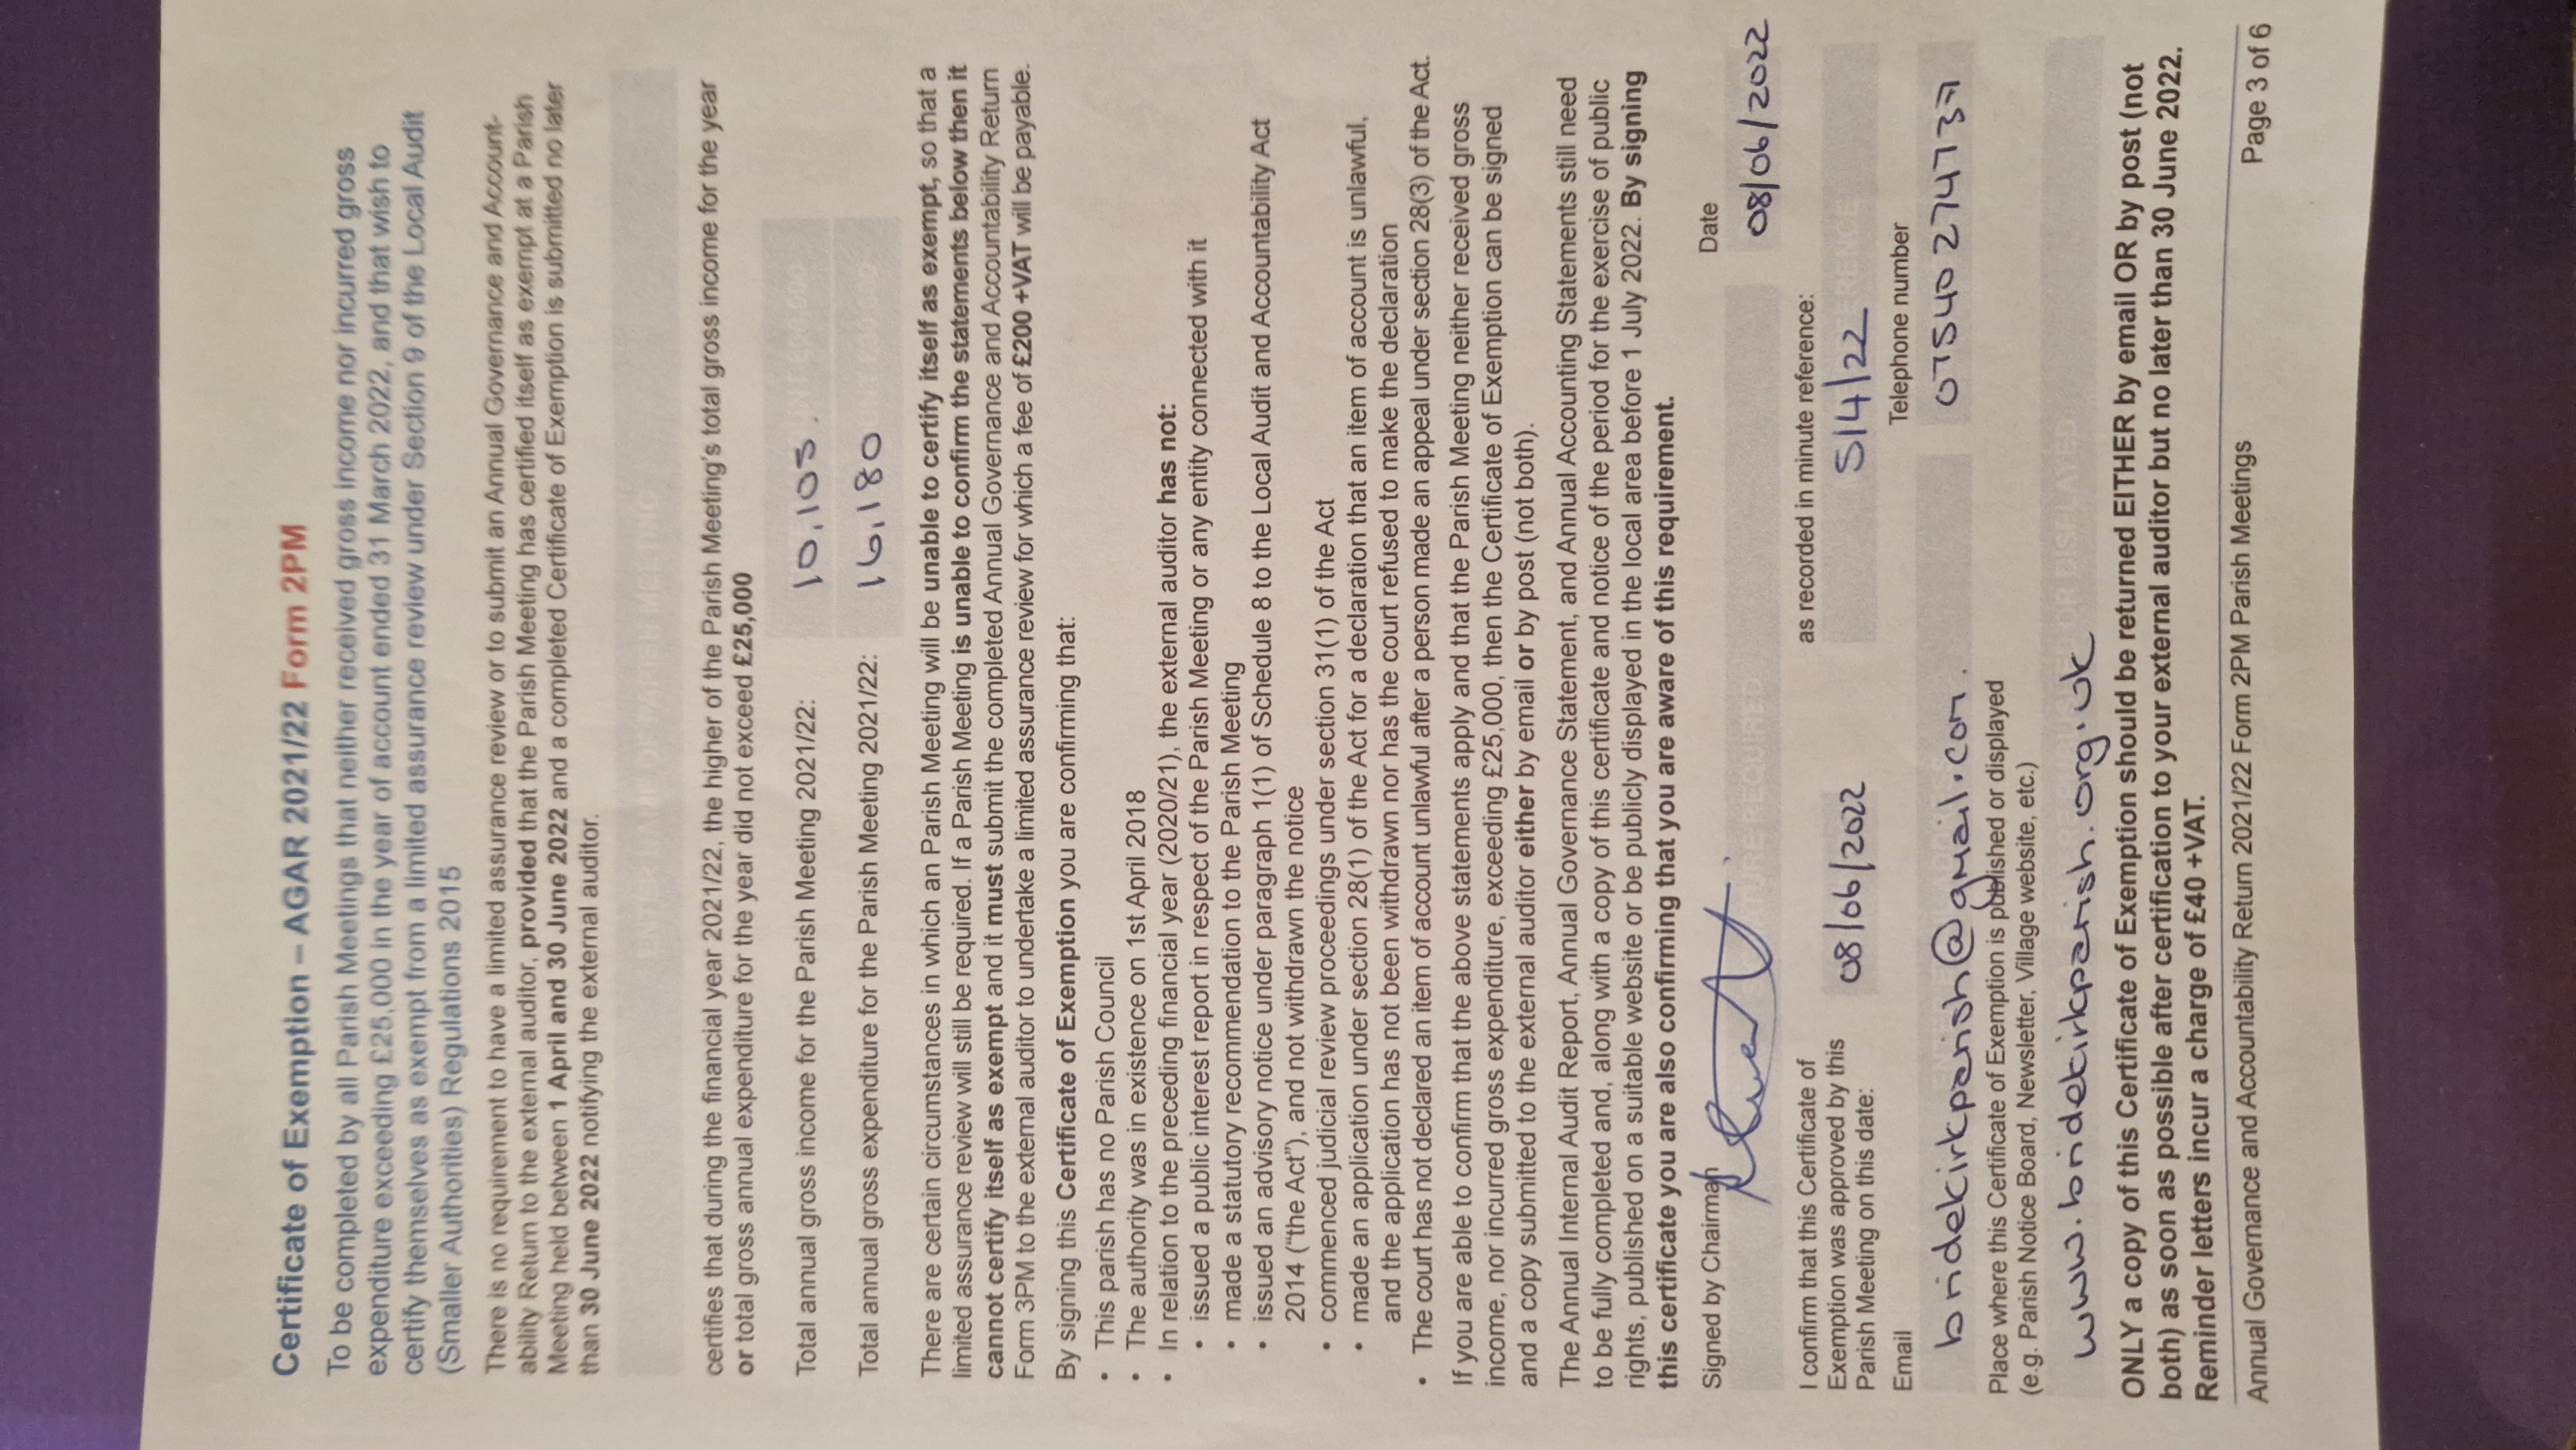 Certificate of Exemption – AGAR 2021/22 Form 2PM
To be completed by all Parish Meetings that neither received gross income nor incurred gross
expenditure exceeding £25,000 in the year of account ended 31 March 2022, and that wish to
certify themselves as exempt from a limited assurance review under Section 9 of the Local Audit
(Smaller Authorities) Regulations 2015
There is no requirement to have a limited assurance review or to submit an Annual Governance and Account-
ability Return to the external auditor, provided that the Parish Meeting has certified itself as exempt at a Parish
Meeting held between 1 April and 30 June 2022 and a completed Certificate of Exemption is submitted no later
than 30 June 2022 notifying the external auditor.
ENTER NAME OF PARISH MEETING
certifies that during the financial year 2021/22, the higher of the Parish Meeting's total gross income for the year
or total gross annual expenditure for the year did not exceed £25,000
Total annual gross income for the Parish Meeting 2021/22: 10,105.
Total annual gross expenditure for the Parish Meeting 2021/22: 16,180
There are certain circumstances in which an Parish Meeting will be unable to certify itself as exempt, so that a
limited assurance review will still be required. If a Parish Meeting is unable to confirm the statements below then it
cannot certify itself as exempt and it must submit the completed Annual Governance and Accountability Return
Form 3PM to the external auditor to undertake a limited assurance review for which a fee of £200 +VAT will be payable.
By signing this Certificate of Exemption you are confirming that:
• This parish has no Parish Council
• The authority was in existence on 1st April 2018
• In relation to the preceding financial year (2020/21), the external auditor has not:
• issued a public interest report in respect of the Parish Meeting or any entity connected with it
• made a statutory recommendation to the Parish Meeting
• issued an advisory notice under paragraph 1(1) of Schedule 8 to the Local Audit and Accountability Act
2014 ("the Act"), and not withdrawn the notice
• commenced judicial review proceedings under section 31(1) of the Act
• made an application under section 28(1) of the Act for a declaration that an item of account is unlawful,
and the application has not been withdrawn nor has the court refused to make the declaration
• The court has not declared an item of account unlawful after a person made an appeal under section 28(3) of the Act.
If you are able to confirm that the above statements apply and that the Parish Meeting neither received gross
income, nor incurred gross expenditure, exceeding £25,000, then the Certificate of Exemption can be signed
and a copy submitted to the external auditor either by email or by post (not both).
The Annual Internal Audit Report, Annual Governance Statement, and Annual Accounting Statements still need
to be fully completed and, along with a copy of this certificate and notice of the period for the exercise of public
rights, published on a suitable website or be publicly displayed in the local area before 1 July 2022. By signing
this certificate you are also confirming that you are aware of this requirement.
Signed by Chairman Date
08/06/2022
I confirm that this Certificate of as recorded in minute reference:
Exemption was approved by this 08/06/2022 5/4/22
Parish Meeting on this date:
Email Telephone number
bridekirkparish@gmail.com. 07540274737
Place where this Certificate of Exemption is published or displayed
(e.g. Parish Notice Board, Newsletter, Village website, etc.)
www.bridekirkparish.org.uk
ONLY a copy of this Certificate of Exemption should be returned EITHER by email OR by post (not
both) as soon as possible after certification to your external auditor but no later than 30 June 2022.
Reminder letters incur a charge of £40 +VAT.
Annual Governance and Accountability Return 2021/22 Form 2PM Parish Meetings Page 3 of 6